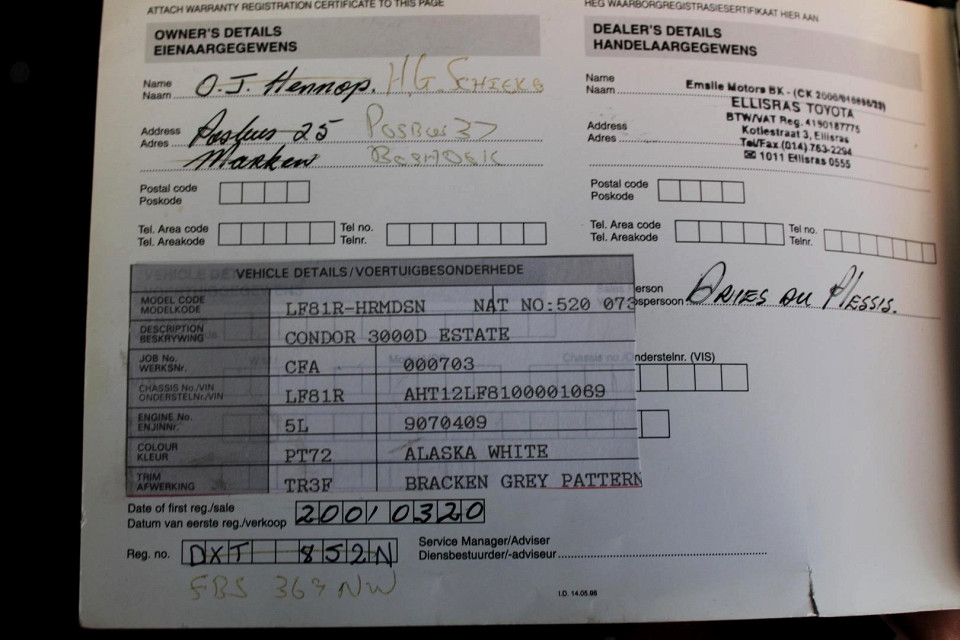 ATTACH WARRANTY REGISTRATION CERTIFICATE TO THIS PAGE
HEG WAARBORGREGISTRASIESERTIFIKAAT HIER AAN
OWNER'S DETAILS
EIENAARGEGEWENS
Name
Naam
O.J. Hennop.
Address
Adres
Posbus 25
Posbus 37
Marken
Postal code
Poskode
Tel. Area code
Tel. Areakode
Tel no.
Telnr.
DEALER'S DETAILS
HANDELAARGEGEWENS
Name
Naam
Emslie Motors BK - (CK
ELLISRAS TOYOTA
BTW/VAT Reg. 4190187775
Kotiestraat 3, Ellisras
Tel/Fax (014) 763-2294
1011 Ellisras 0555
Address
Adres
Postal code
Poskode
Tel. Area code
Tel. Areakode
Tel no.
Telnr.
erson
spersoon
DRIES DU PLESSIS.
Chassis no./Onderstelnr. (VIS)
VEHICLE DETAILS/VOERTUIGBESONDERHEDE
MODEL CODE
MODELKODE
LF81R-HRMDSN NAT NO:520 073
DESCRIPTION
BESKRYWING
CONDOR 3000D ESTATE
JOB No.
WERKSNr.
CFA 000703
CHASSIS No./VIN
ONDERSTELNr./VIN
LF81R AHT12LF8100001069
ENGINE No.
ENJINNr.
5L 9070409
COLOUR
KLEUR
PT72 ALASKA WHITE
TRIM
AFWERKING
TR3F BRACKEN GREY PATTERN
Date of first reg./sale
Datum van eerste reg./verkoop
20010320
Reg. no.
DXT 852N
FBS 369 NW
Service Manager/Adviser
Diensbestuurder/-adviseur
I.D. 14.05.98